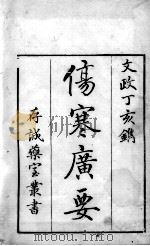 文政丁亥鐫
傷寒廣要
存誠藥室叢書